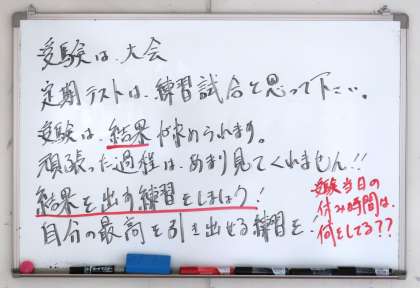 受験は、大会
定期テストは、練習試合と思って下さい。
受験は、結果が求められます。
頑張った過程は、あまり見てくれません!!
結果を出す練習をしましょう!
自分の最高を引き出せる練習を!
受験当日の
休み時間は、
何をしてる??